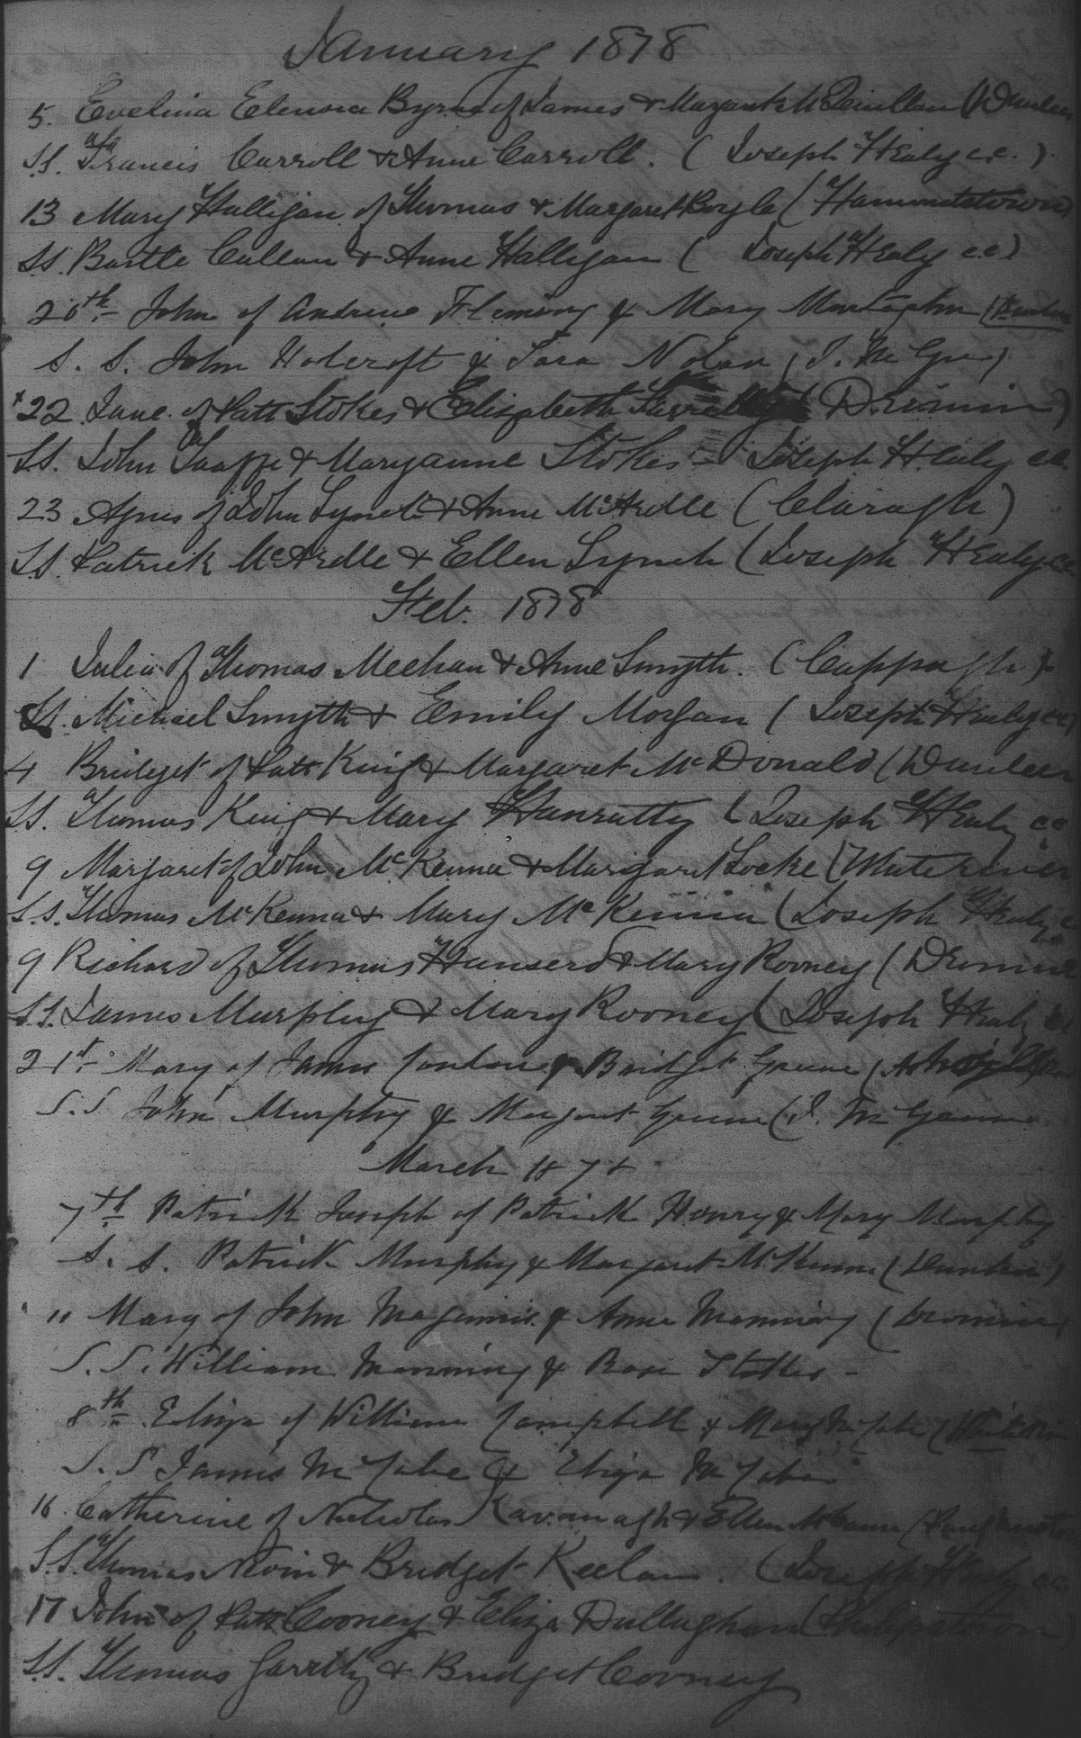 January 1878
5. Evelina Elenora Byrne of James & Margaret McQuillan (Dunleer
S.S. Francis Carroll & Anne Carroll. (Joseph Healy c.c.)
13 Mary Halligan of Thomas & Margaret Boyle (Hamondstown
SS. Bartle Callan & Anne Halligan (Joseph Healy c.c)
20th John of Andrew Fleming & Mary Murtagh (Dunleer
S. S. John Holcroft & Sara Nolan (J. McG
+22 Jane of Patt Stokes & Elizabeth (Dromin)
SS. John Taaffe & Maryanne Stokes - Joseph Healy cc.
23 Agnes of John Lynch & Anne McArdle (Claragh)
SS. Patrick McArdle & Ellen Lynch (Joseph Healy cc
Feb. 1878
1 Julia of Thomas Meehan & Anne Smyth. (Cappagh)
SS. Michael Smyth & Emily Morgan (Joseph Healy cc)
4 Bridget of Patt King & Margaret McDonald (Dunleer
SS. Thomas King & Mary Hanratty (Joseph Healy cc
9 Margaret of John McKenna & Margaret Locke (Whiteriver
S.S. Thomas McKenna & Mary McKenna (Joseph Healy c
9 Richard of Thomas Hanserd & Mary Rooney (Dromin
S.S. James Murphy & Mary Rooney (Joseph Healy
21st Mary of James Conlon & Bridget Greene
S.S John Murphy & Margaret Greene (J. McG
March 1878
7th Patrick Joseph of Patrick Henry & Mary Murphy
S. S. Patrick Murphy & Margaret McKenna (Dunleer)
11 Mary of John Maginnis & Anne Manning (Dromin)
S. S. William Manning & Rose Stokes -
8th Eliza of William Campbell & Mary McCabe (Whiteriver
S. S James McCabe & Eliza McCabe
16. Catherine of Nicholas Kavanagh & Ellen
S.S. Thomas Nevin & Bridget Keelan. (Joseph Healy cc
17 John of Patt Cooney & Eliza Dullaghan (Philipstown)
SS. Thomas Garrity & Bridget Cooney